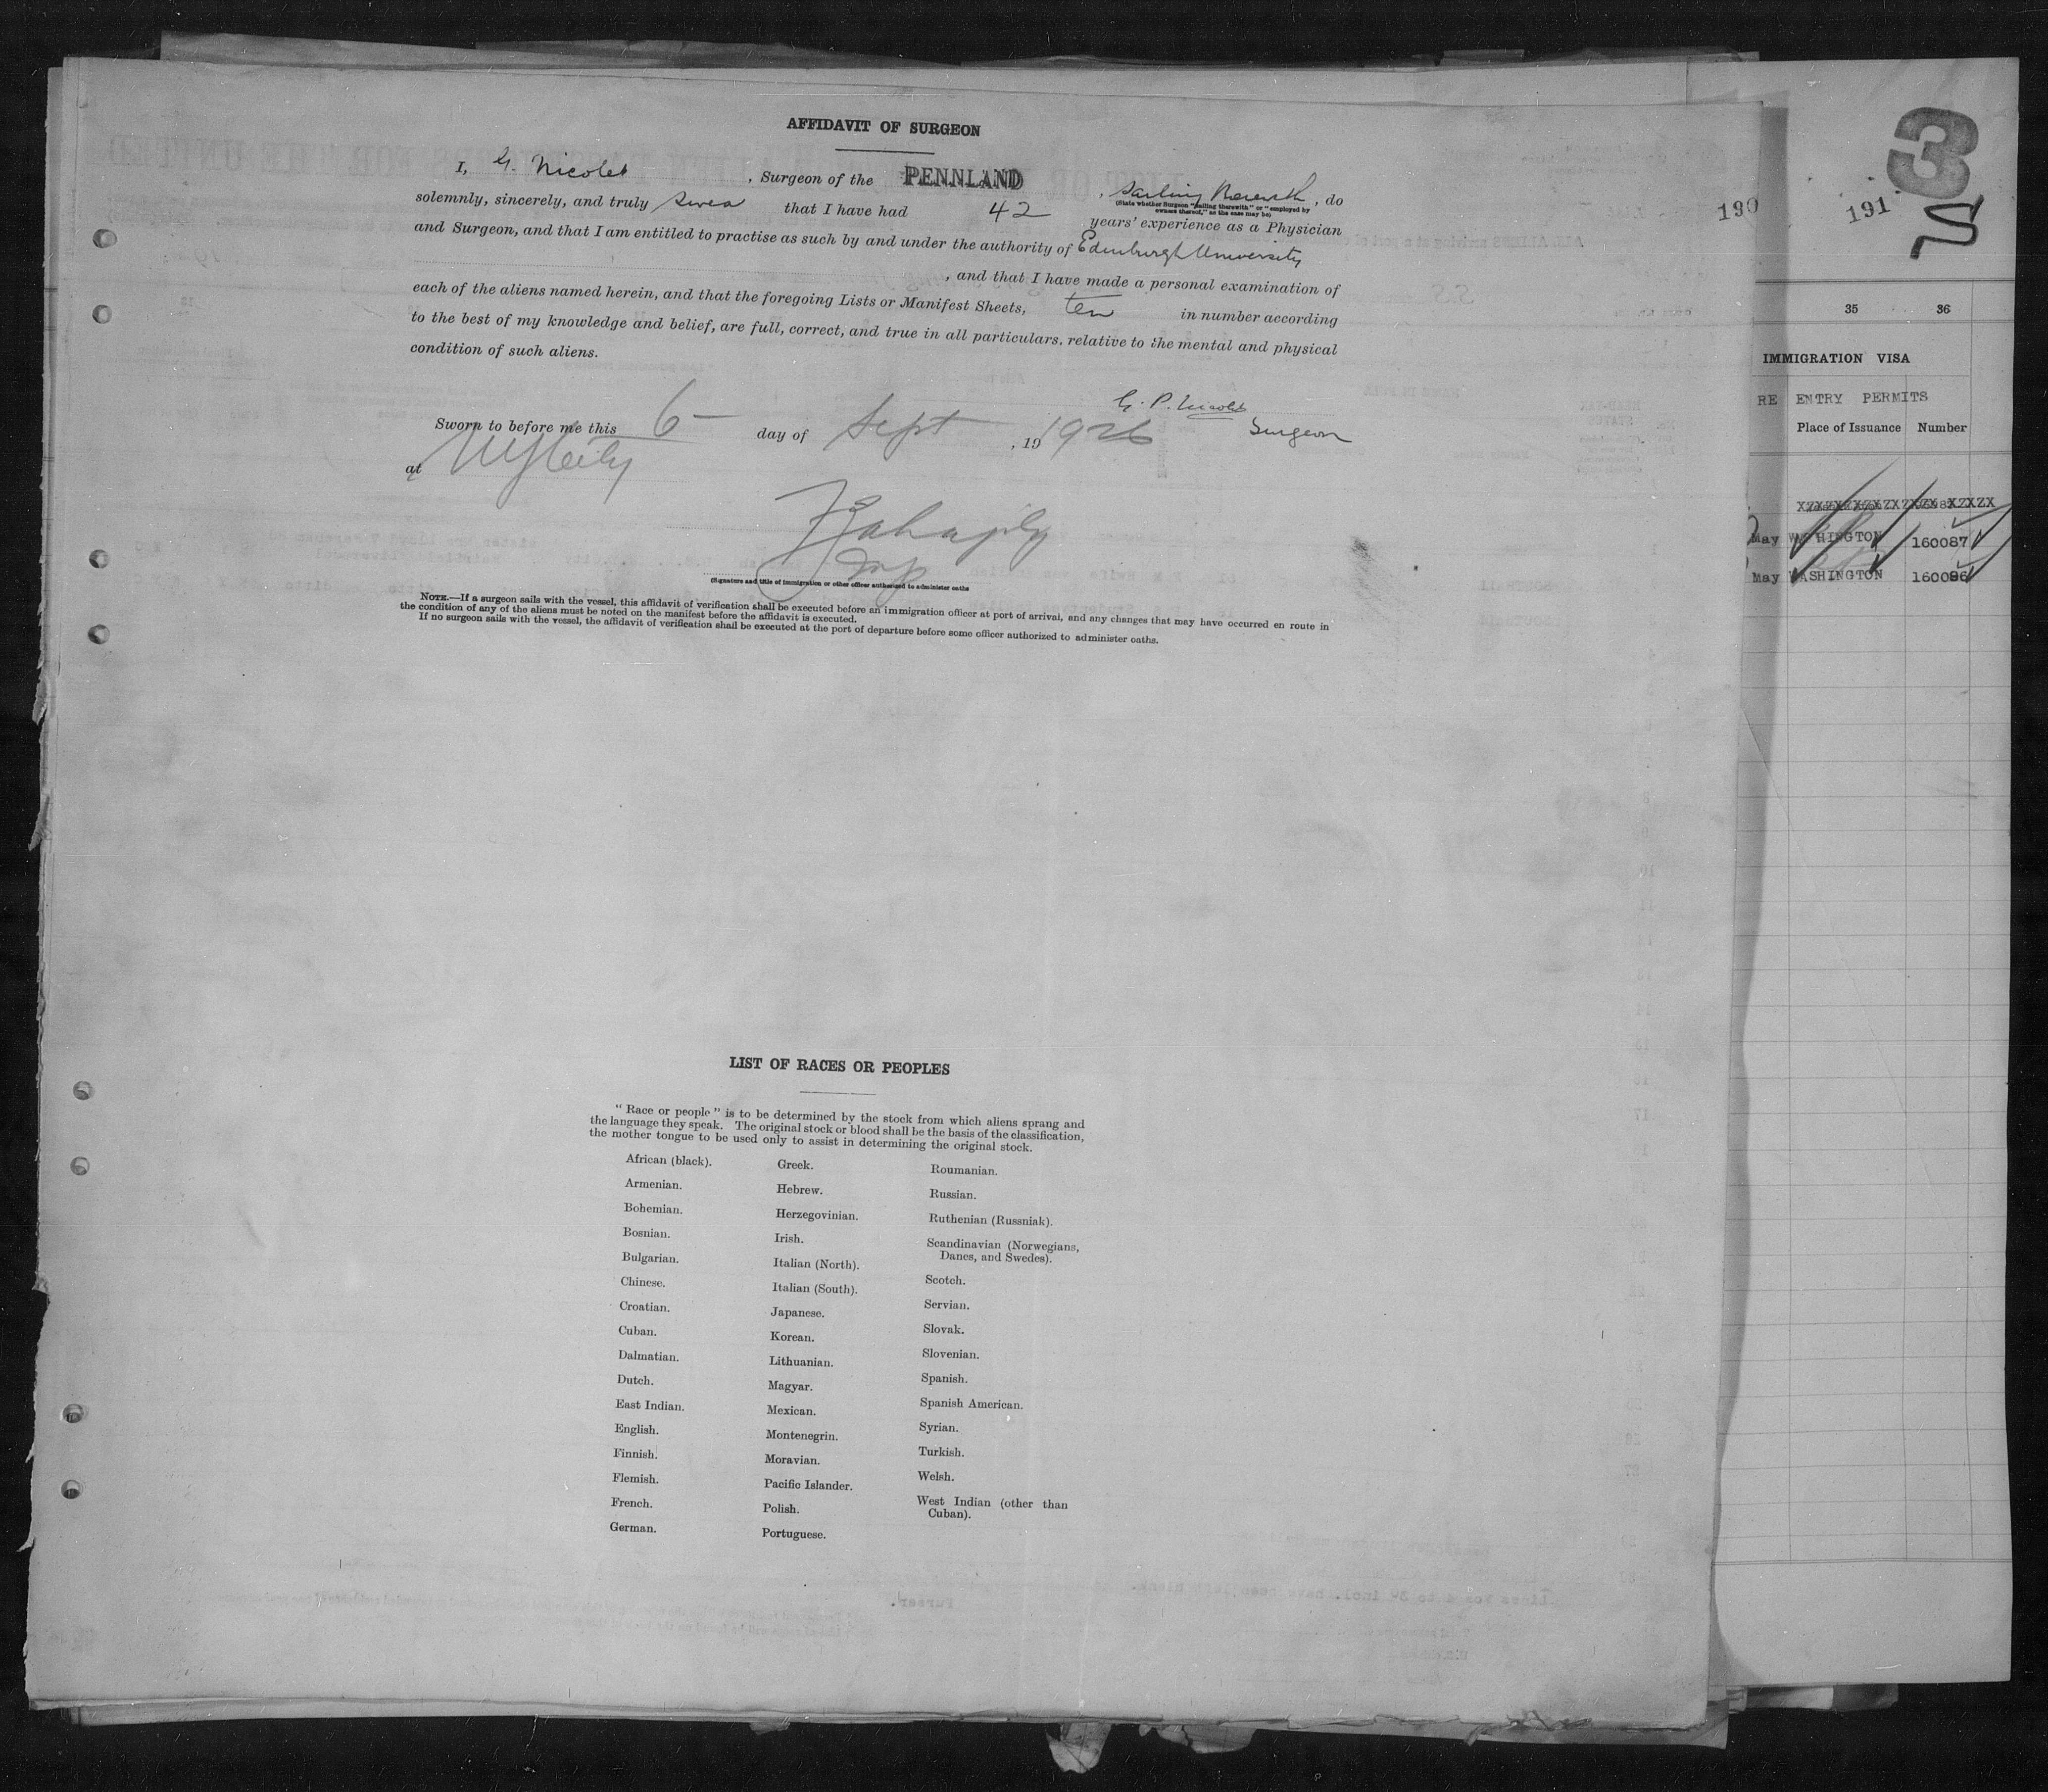 AFFIDAVIT OF SURGEON
I, G. Nicolet, Surgeon of the PENNLAND, sailing therewith, do
(State whether Surgeon "sailing therewith" or "employed by
owners thereof," as the case may be)
solemnly, sincerely, and truly swear that I have had 42 years' experience as a Physician
and Surgeon, and that I am entitled to practise as such by and under the authority of Edinburgh University
, and that I have made a personal examination of
each of the aliens named herein, and that the foregoing Lists or Manifest Sheets, ten in number according
to the best of my knowledge and belief, are full, correct, and true in all particulars, relative to the mental and physical
condition of such aliens.
G. P. Nicolet
Surgeon
Sworn to before me this 6 day of Sept, 1926
at NY City
(Signature and title of immigration or other officer authorized to administer oaths
NOTE.—If a surgeon sails with the vessel, this affidavit of verification shall be executed before an immigration officer at port of arrival, and any changes that may have occurred en route in
the condition of any of the aliens must be noted on the manifest before the affidavit is executed.
If no surgeon sails with the vessel, the affidavit of verification shall be executed at the port of departure before some officer authorized to administer oaths.
LIST OF RACES OR PEOPLES
"Race or people" is to be determined by the stock from which aliens sprang and
the language they speak. The original stock or blood shall be the basis of the classification,
the mother tongue to be used only to assist in determining the original stock.
African (black).
Armenian.
Bohemian.
Bosnian.
Bulgarian.
Chinese.
Croatian.
Cuban.
Dalmatian.
Dutch.
East Indian.
English.
Finnish.
Flemish.
French.
German.
Greek.
Hebrew.
Herzegovinian.
Irish.
Italian (North).
Italian (South).
Japanese.
Korean.
Lithuanian.
Magyar.
Mexican.
Montenegrin.
Moravian.
Pacific Islander.
Polish.
Portuguese.
Roumanian.
Russian.
Ruthenian (Russniak).
Scandinavian (Norwegians,
Danes, and Swedes).
Scotch.
Servian.
Slovak.
Slovenian.
Spanish.
Spanish American.
Syrian.
Turkish.
Welsh.
West Indian (other than
Cuban).
3
190
191
35 36
IMMIGRATION VISA
RE ENTRY PERMITS
Place of Issuance Number
May WASHINGTON 160087
May WASHINGTON 160086